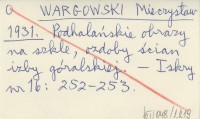 WARGOWSKI Mieczysław
1931. Podhalańskie obrazy
na szkle, ozdoby ścian
izby góralskiej. — Iskry
nr 16: 252-253.